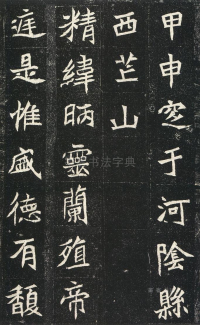 甲申窆于河陰縣
西芒山
精緯昞靈蘭殖帝
庭是惟盛德有馥
书法字典